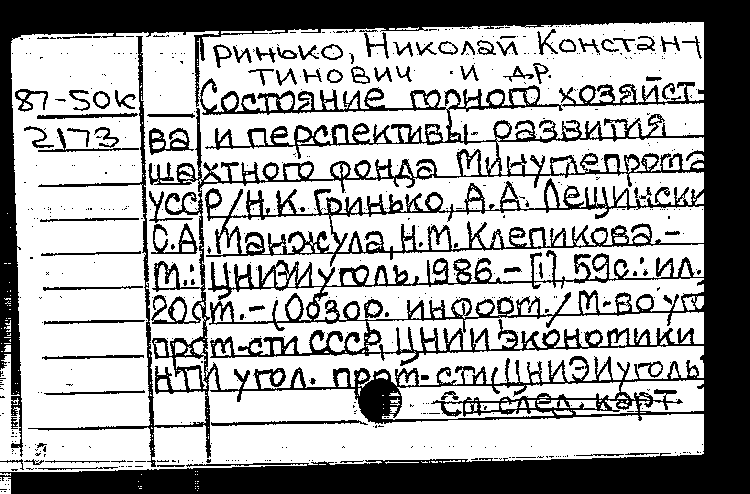 Гринько, Николай Констан-
тинович и др.
87-50к Состояние горного хозяйст-
2173 ва и перспективы развития
шахтного фонда Минуглепрома
УССР/Н.К. Гринько, А.А. Лещински
С.А. Манжула, Н.М. Клепикова.-
М.: ЦНИЭИуголь, 1986.- [1], 59с.: ил.
20см.-(Обзор. информ./ М-во уго
пром-сти СССР, ЦНИИ экономики
НТИ угол. пром-сти(ЦНИЭИуголь)
См. след. карт.